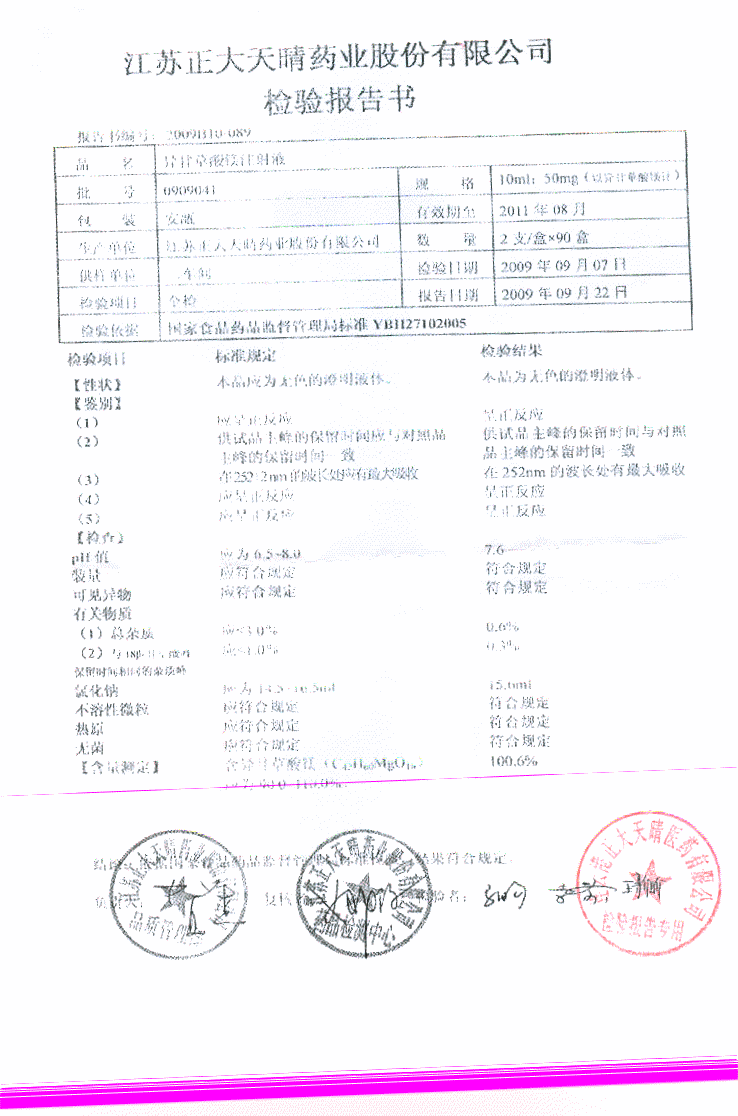 江苏正大天晴药业股份有限公司
检验报告书
报告书编号：2009B10-089
品 名 异甘草酸镁注射液
批 号 0909041 规 格 10ml：50mg（以异甘草酸镁计）
包 装 安瓿 有效期至 2011 年 08 月
生产单位 江苏正大天晴药业股份有限公司 数 量 2 支/盒×90 盒
供样单位 二车间 检验日期 2009 年 09 月 07 日
检验项目 全检 报告日期 2009 年 09 月 22 日
检验依据 国家食品药品监督管理局标准 YBH27102005
检验项目 标准规定 检验结果
【性状】 本品应为无色的澄明液体。 本品为无色的澄明液体。
【鉴别】
（1） 应呈正反应 呈正反应
（2） 供试品主峰的保留时间应与对照品 供试品主峰的保留时间与对照
主峰的保留时间一致 品主峰的保留时间一致
（3） 在252±2nm的波长处应有最大吸收 在 252nm 的波长处有最大吸收
（4） 应呈正反应 呈正反应
（5） 应呈正反应 呈正反应
【检查】
pH 值 应为 6.5~8.0 7.6
装量 应符合规定 符合规定
可见异物 应符合规定 符合规定
有关物质
（1）总杂质 0.6%
（2） 0.3%
保留时间相同的杂质峰
氯化钠 15.6ml
不溶性微粒 应符合规定 符合规定
热原 应符合规定 符合规定
无菌 应符合规定 符合规定
【含量测定】 含异甘草酸镁 100.6%
结果符合规定。
药品检测中心
正大天晴医药有限公司
检验报告专用